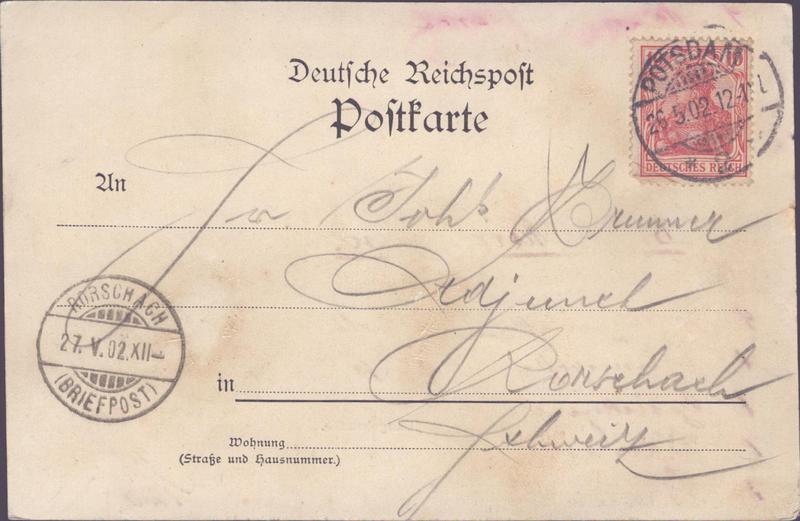 Deutsche Reichspost
Postkarte
POTSDAM
26.5.02.12-1N.
DEUTSCHES REICH
An
Joh. Brunner
Adjunct
RORSCHACH
27.V.02.XII-
(BRIEFPOST)
in Rorschach
Schweiz
Wohnung
(Straße und Hausnummer.)